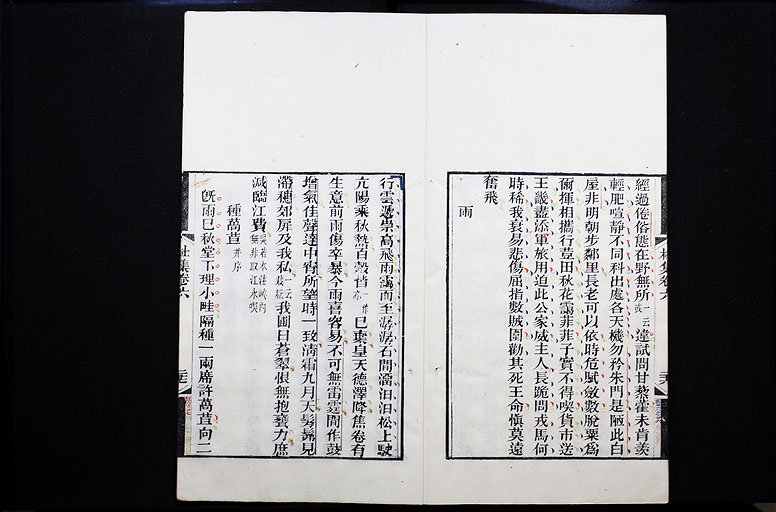 經過倦俗態在野無所一云或違試問甘藜藿未肯羨
輕肥喧靜不同科出處各天機勿矜朱門是陋此白
屋非明朝步鄰里長老可以依時危賦斂數脫粟為
爾揮相攜行荳田秋花靄菲菲子實不得喫貨市送
王畿盡添軍旅用迫此公家威主人長跪問戎馬何
時稀我衰易悲傷屈指數賊圍勸其死王命慎莫遠
奮飛
雨
行雲遞崇高飛雨靄而至潺潺石間溜汩汩松上駛
亢陽乘秋熱百穀皆已棄皇天德澤降焦卷有
生意前雨傷卒暴今雨喜容易不可無雷霆間作鼓
增氣佳聲達中宵所望時一致清霜九月天髣髴見
滯穗郊扉及我私我圃日蒼翠恨無抱甕力庶
減臨江費
種萵苣并序
旣雨已秋堂下理小畦隔種一兩席許萵苣向二
杜集卷六
杜集卷六